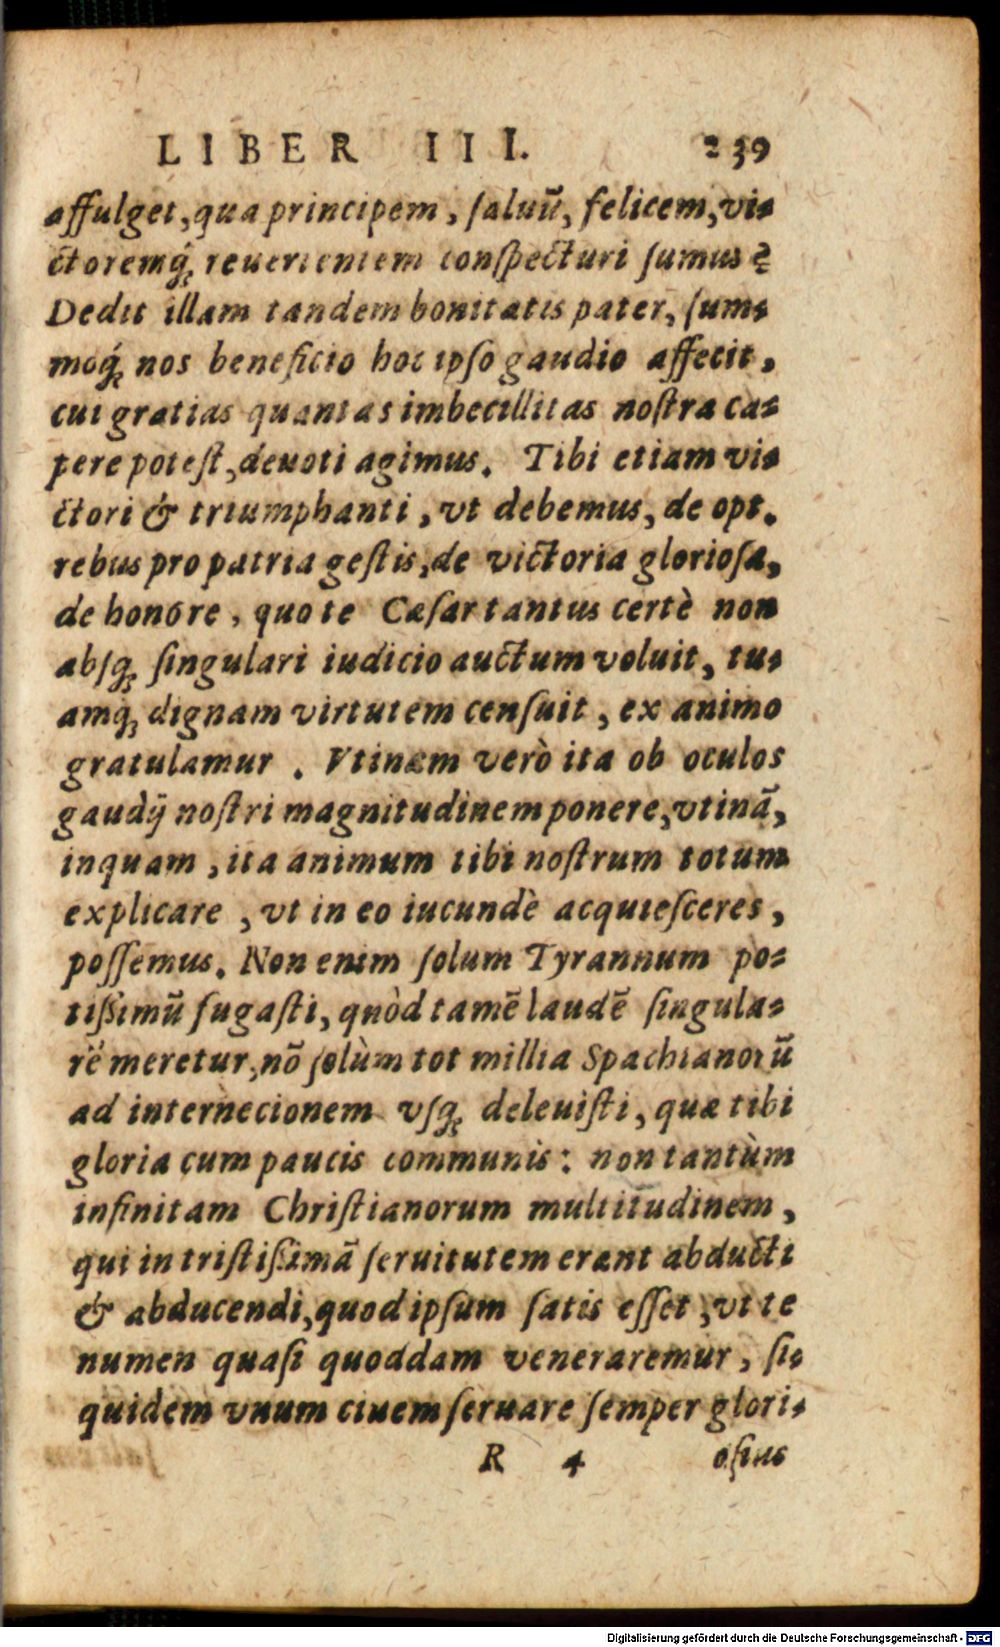 LIBER III. 239
affulget, qua principem, ſaluū, felicem, vi-
ctoremq́ꝫ reuertentem conſpecturi ſumus?
Dedit illam tandem bonitatis pater, ſum-
moq́ꝫ nos beneficio hoc ipſo gaudio affecit,
cui gratias quantas imbecillitas noſtra ca-
pere poteſt, deuoti agimus. Tibi etiam vi-
ctori & triumphanti, vt debemus, de opt.
rebus pro patria geſtis, de victoria glorioſa,
de honore, quo te Cæſar tantus certè non
abſqꝫ ſingulari iudicio auctum voluit, tu-
amqꝫ dignam virtutem cenſuit, ex animo
gratulamur. Vtinam verò ita ob oculos
gaudij noſtri magnitudinem ponere, vtinā,
inquam, ita animum tibi noſtrum totum
explicare, vt in eo iucundè acquieſceres,
poſſemus. Non enim ſolum Tyrannum po-
tiſsimū fugaſti, quòd tamē laudē ſingula-
rē meretur, nō ſolùm tot millia Spachianorū
ad internecionem vſqꝫ deleuiſti, quæ tibi
gloria cum paucis communis: non tantùm
infinitam Chriſtianorum multitudinem,
qui in triſtiſsimā ſeruitutem erant abducti
& abducendi, quod ipſum ſatis eſſet, vt te
numen quaſi quoddam veneraremur, ſi-
quidem vnum ciuem ſeruare ſemper glori-
R 4 oſius
Digitalisierung gefördert durch die Deutsche Forschungsgemeinschaft - DFG